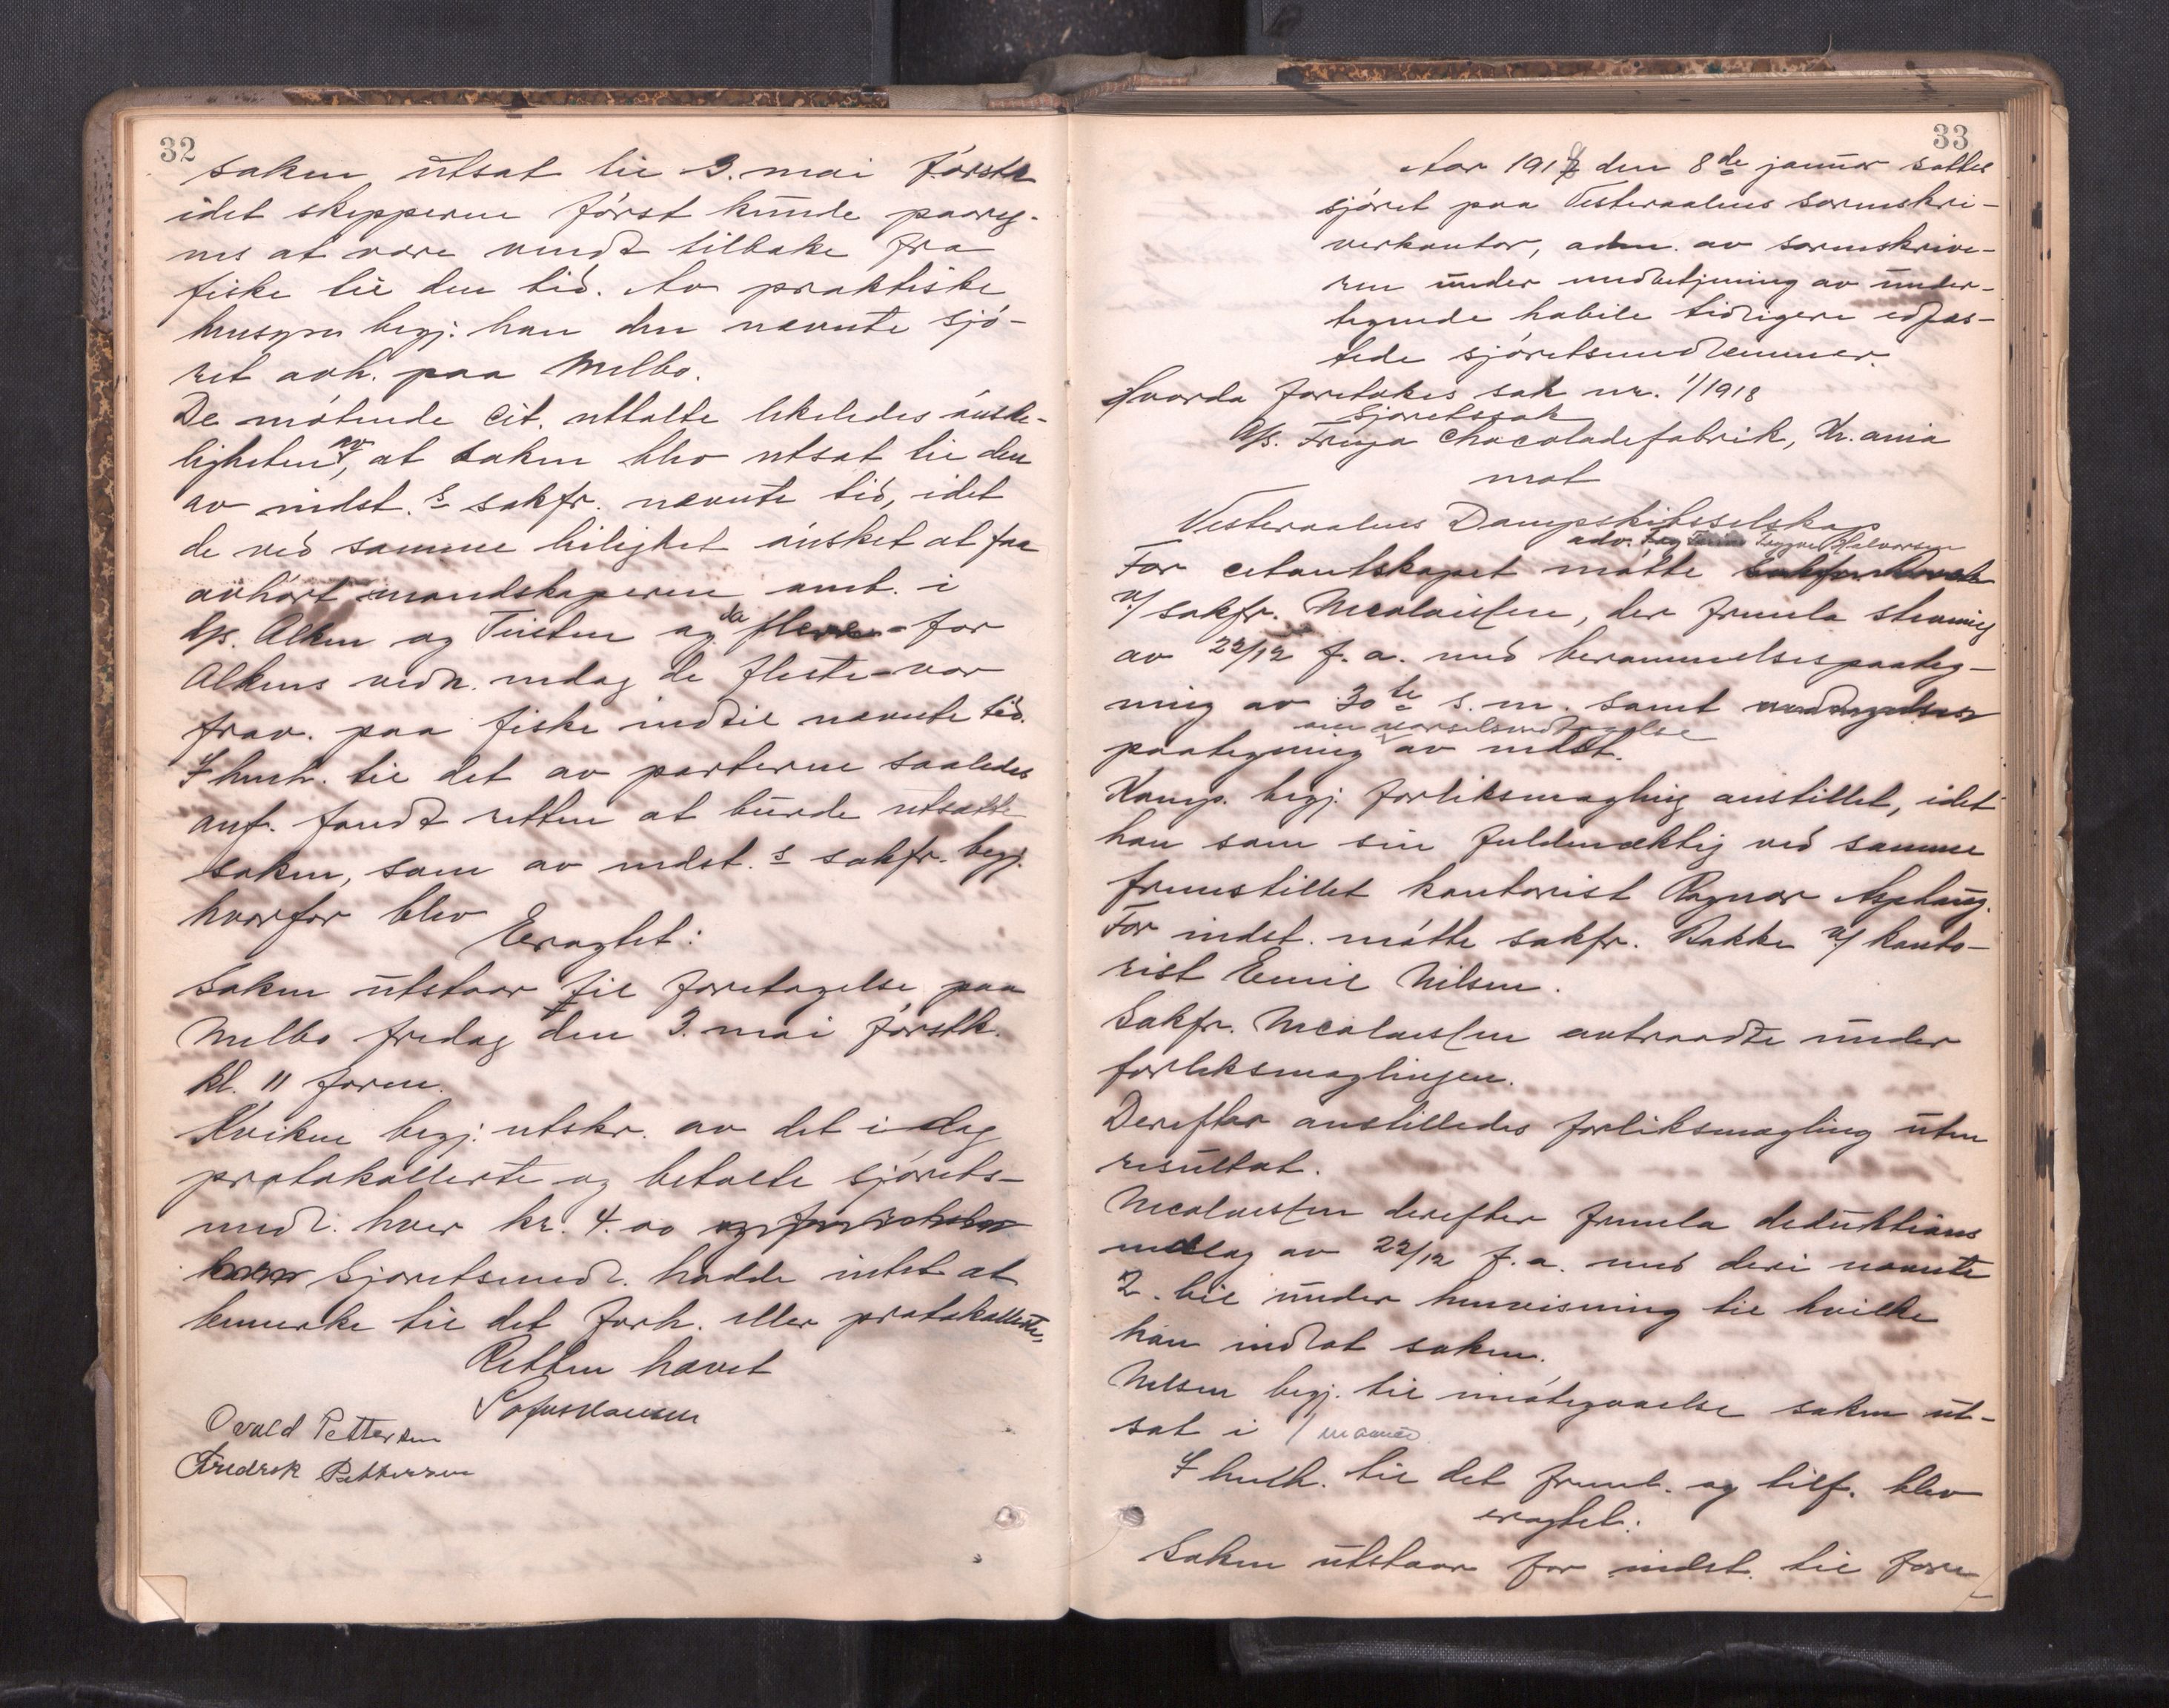 32
saken utsat til 3. mai førstk
idet skipperne først kunde paareg-
nes at være vendt tilbake fra
fiske til den tid. Av praktiske
hensyn begj. han den nævnte sjø-
ret avh. paa Melbo.
De møtende cit. uttalte likeledes ønske-
ligheten av, at saken blev utsat til den
av indst.s sakfr. nævnte tid, idet
de ved samme leilighet ønsket at faa
avhørt mandskaperne omb. i
d/s. Alken og Teisten og da flere - for
Alkens vedk. endog de fleste - var
frav. paa fiske indtil nævnte tid.
I henh. til det av parterne saaledes
anf. fandt retten at burde utsætte
saken, som av indst.s sakfr. begj.
hvorfor blev
Eragtet:
Saken utstaar til foretagelse paa
Melbo fredag den 3. mai førstk.
kl. 11 form.
Kviken begj. utskr. av det i dag
protokollerte og betalte sjørets-
medl. hver kr. 4.00
Sjøretsmedl. hadde intet at
bemerke til det forh. eller protokollerte,
Retten hævet
Osvald Pettersen
Fredrik Pettersen
33
Aar 1918 den 8de januar sattes
sjøret paa Vesteraalens sorenskri-
verkontor, adm. av sorenskrive-
ren under medbetjening av under-
tegnede habile tidligere edfæs-
tede sjøretsmedlemmer.
Hvorda foretokes sak nr. 1/1918
Sjøretssak
A/s. Freya Chocoladefabrik, Kr.ania
mot
Vesteraalens Dampskibsselskap
adv. Trygve Halvorsen
For citantskapet møtte
v/ sakfr. Nicolaissen, der freml. stevning
av 22/12 f.a. med berammelsespaateg-
ning av 30te s.m. samt
om varselsvedtagelse
paategning av indst.
Komp. begj. forliksmægling anstillet, idet
han som sin fuldmæktig ved samme
fremstillet kontorist Ragnar Asphaug.
For indst. møtte sakfr. Bakke v/ konto-
rist Emil Nilsen.
Sakfr. Nicolaissen antraadte under
forliksmæglingen.
Derefter anstilledes forliksmægling uten
resultat.
Nicolaissen derefter freml. deduktions
indlæg av 22/12 f.a. med deri nævnte
2 bil. under henvisning til hvilke
han indlot saken.
Nilsen begj. til imøtegaaelse saken ut-
sat i 1 maaned.
I henh. til det freml. og tilf. blev
eragtet:
Saken utstaar for indst. til fore